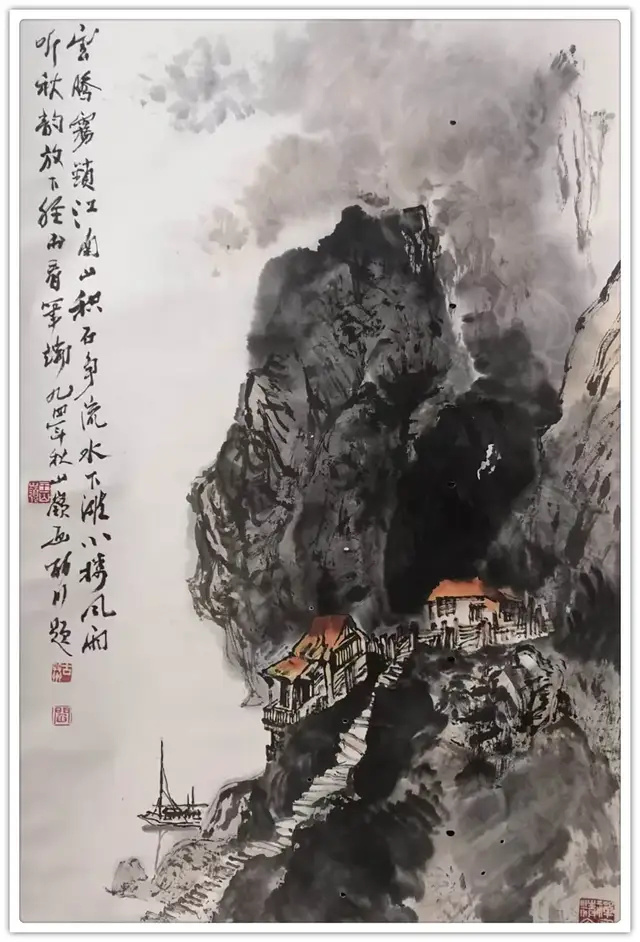 雲腾雾鎖江南山积石争流水下滩小楼风雨
听秋韵放下经看筆端九四年秋山嶺画题